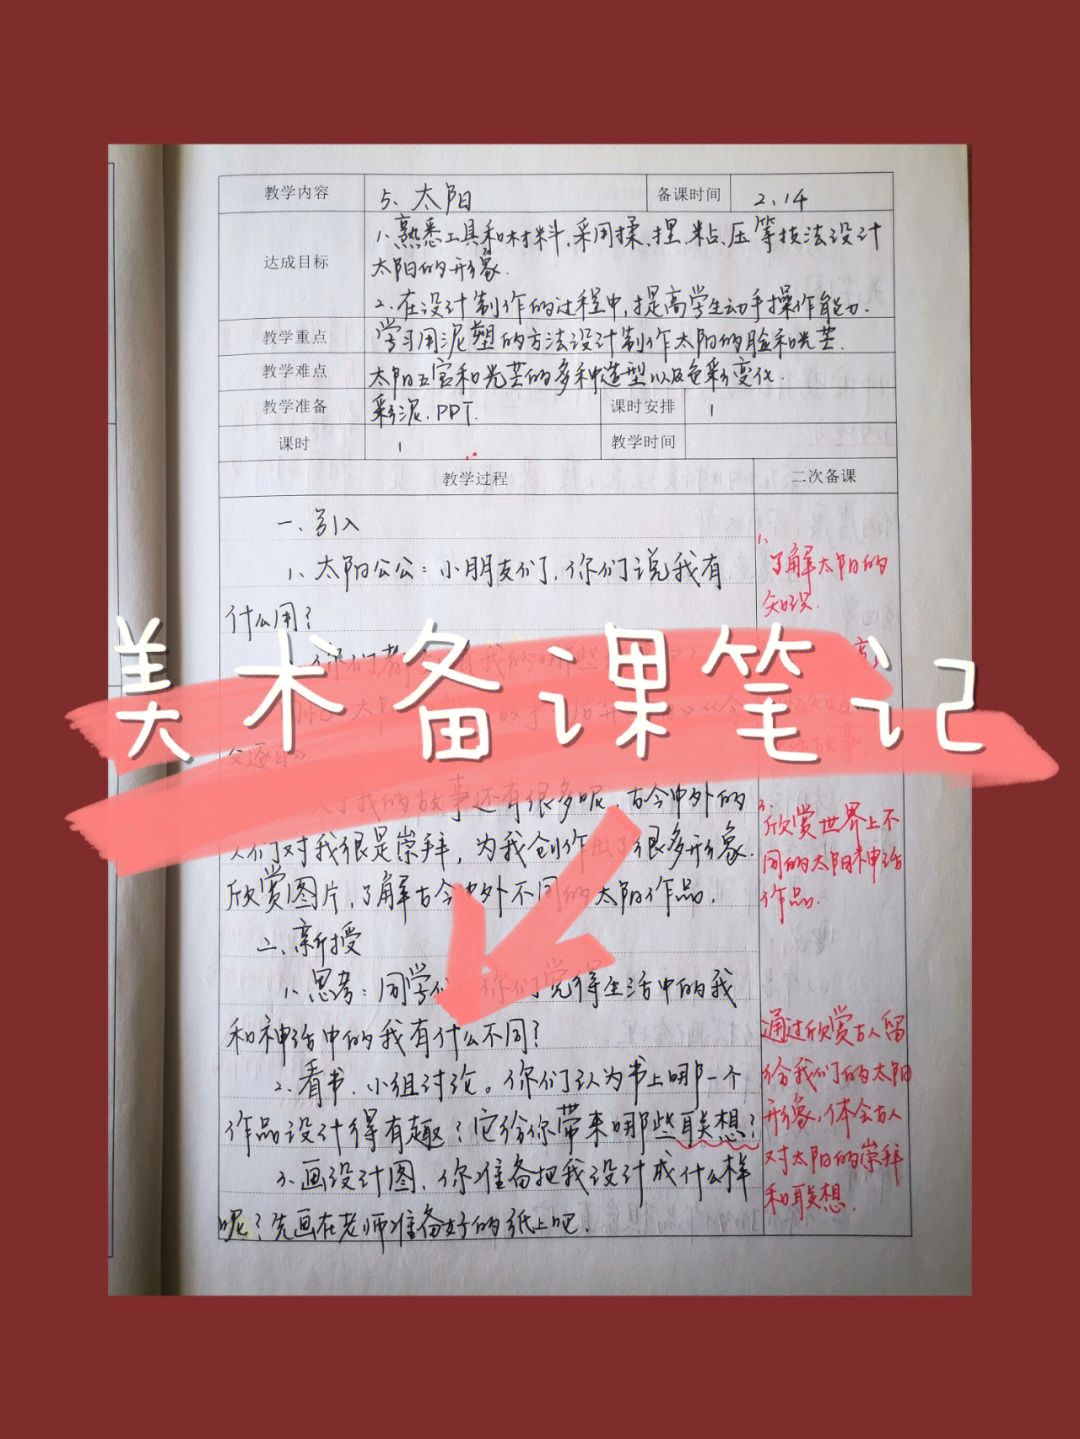 教学内容 5、太阳 备课时间 2、14
达成目标
1、熟悉工具和材料,采用揉、捏、粘、压等技法设计
太阳的形象.
2、在设计制作的过程中,提高学生动手操作能力.
教学重点 学习用泥塑的方法设计制作太阳的脸和光芒.
教学难点 太阳五官和光芒的多种造型以及色彩变化.
教学准备 彩泥、PPT. 课时安排 1
课时 1 教学时间
教学过程 二次备课
一、引入
1、太阳公公:小朋友们,你们说我有
什么用?
美术备课笔记
的故事还有很多呢,古今中外的
人们对我很是崇拜,为我创作出了很多形象.
欣赏图片,了解古今中外不同的太阳作品.
二、新授
1、思考:同学们,你们觉得生活中的我
和神话中的我有什么不同?
2、看书,小组讨论。你们认为书上哪一个
作品设计得有趣?它给你带来哪些联想?
3、画设计图,你准备把我设计成什么样
呢?先画在老师准备好的纸上吧.
1、
了解太阳的
知识.
3、
欣赏世界上不
同的太阳神话
作品.
通过欣赏古人留
给我们的太阳
形象,体会古人
对太阳的崇拜
和联想.